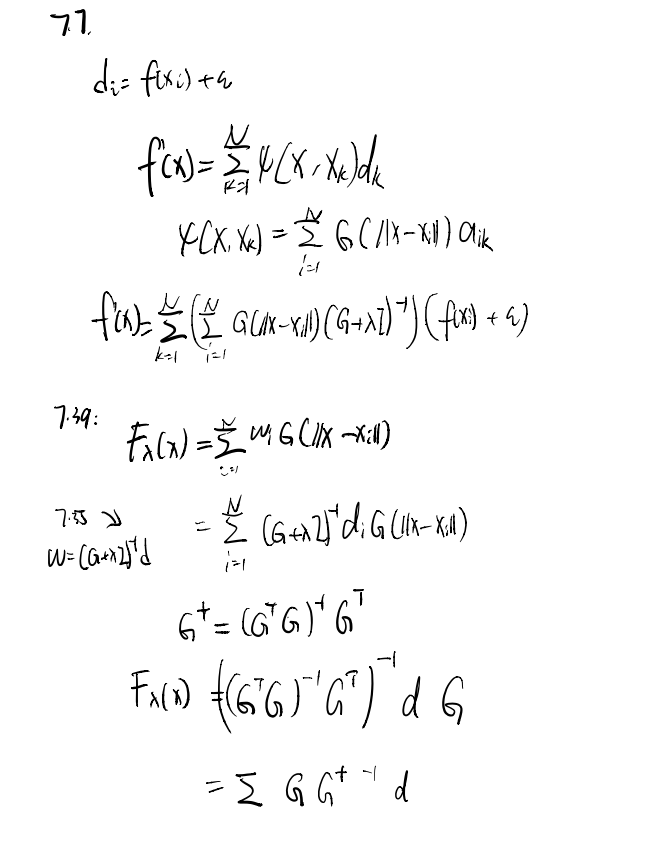 7.7.
d_i = f(x_i) + ε_i
f'(x) = Σ_{k=1}^{N} ψ(x, x_k) d_k
ψ(x, x_k) = Σ_{i=1}^{N} G(||x-x_i||) a_{ik}
f'(x) = Σ_{k=1}^{N} (Σ_{i=1}^{N} G(||x-x_i||) (G+λI)^{-1}) (f(x_i) + ε_i)
7.39: F_λ(x) = Σ_{i=1}^{N} w_i G(||x-x_i||)
7.55 ↘ = Σ_{i=1}^{N} (G+λI)^{-1} d_i G(||x-x_i||)
w=(G+λI)^{-1} d
G^+ = (G^T G)^{-1} G^T
F_λ(x) = ((G^T G)^{-1} G^T)^{-1} d G
= Σ G G^{+ -1} d